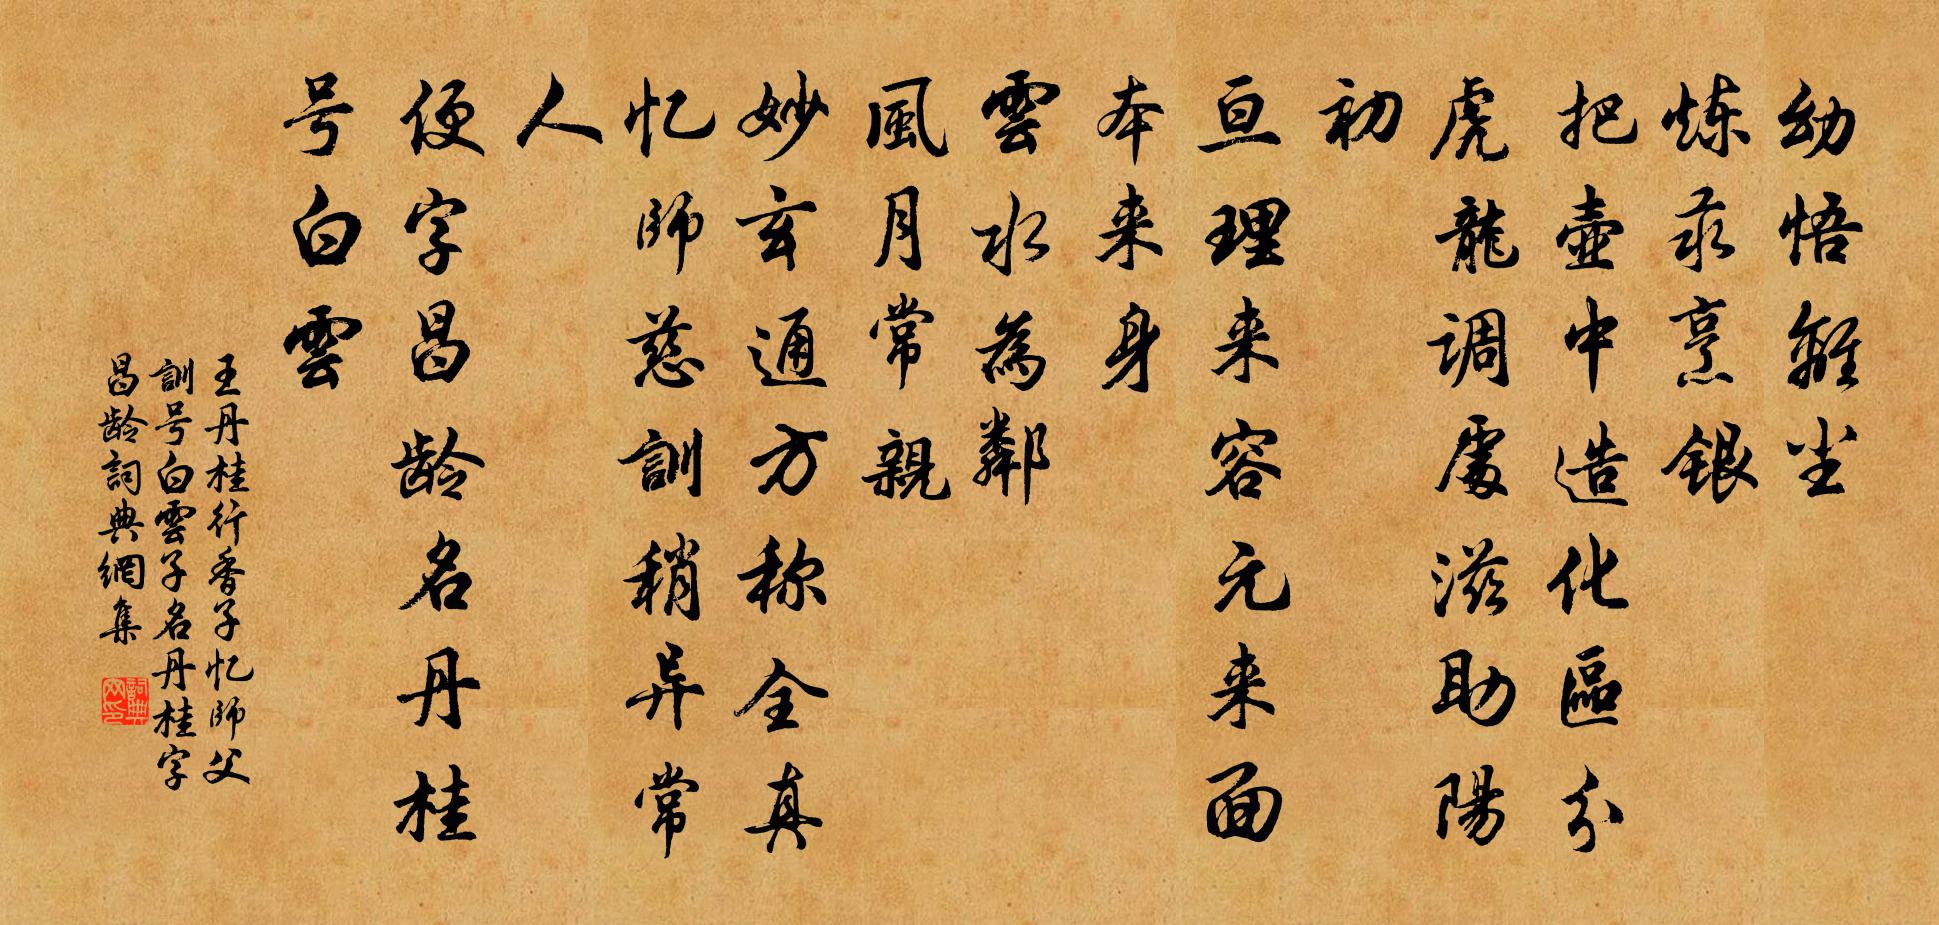 幼悟離尘
炼汞烹銀
把壺中造化區分
虎龍调處滋助陽
初
亘理来容元来面
本来身
雲水為鄰
風月常親
妙玄通方称全真
忆師慈訓稍异常
人
便字昌龄名丹桂
号白雲
王丹桂行香子忆師父
訓号白雲子名丹桂字
昌龄詞典網集
詞典网印